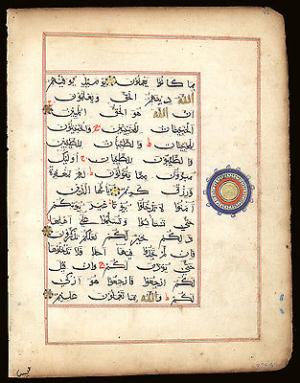 بما كانوا يعملون يومئذ يوفيهم
الله دينهم الحق ويعلمون
ان الله هو الحق المبين
الخبيثات للخبيثين والخبيثون
للخبيثات والطيبات للطيبين
والطيبون للطيبات اوليك
مبرون مما يقولون لهم مغفرة
ورزق كريم يايها الذين
آمنوا لا تدخلوا بيوتا غير بيوتكم
حتى تستانسوا وتسلموا على اهلها
ذلكم خير لكم لعلكم تذكرون
فان لم تجدوا فيها احدا فلا تدخلوها
حتى يوذن لكم وان قيل
لكم ارجعوا فارجعوا هو ازكى
لكم والله بما تعملون عليم